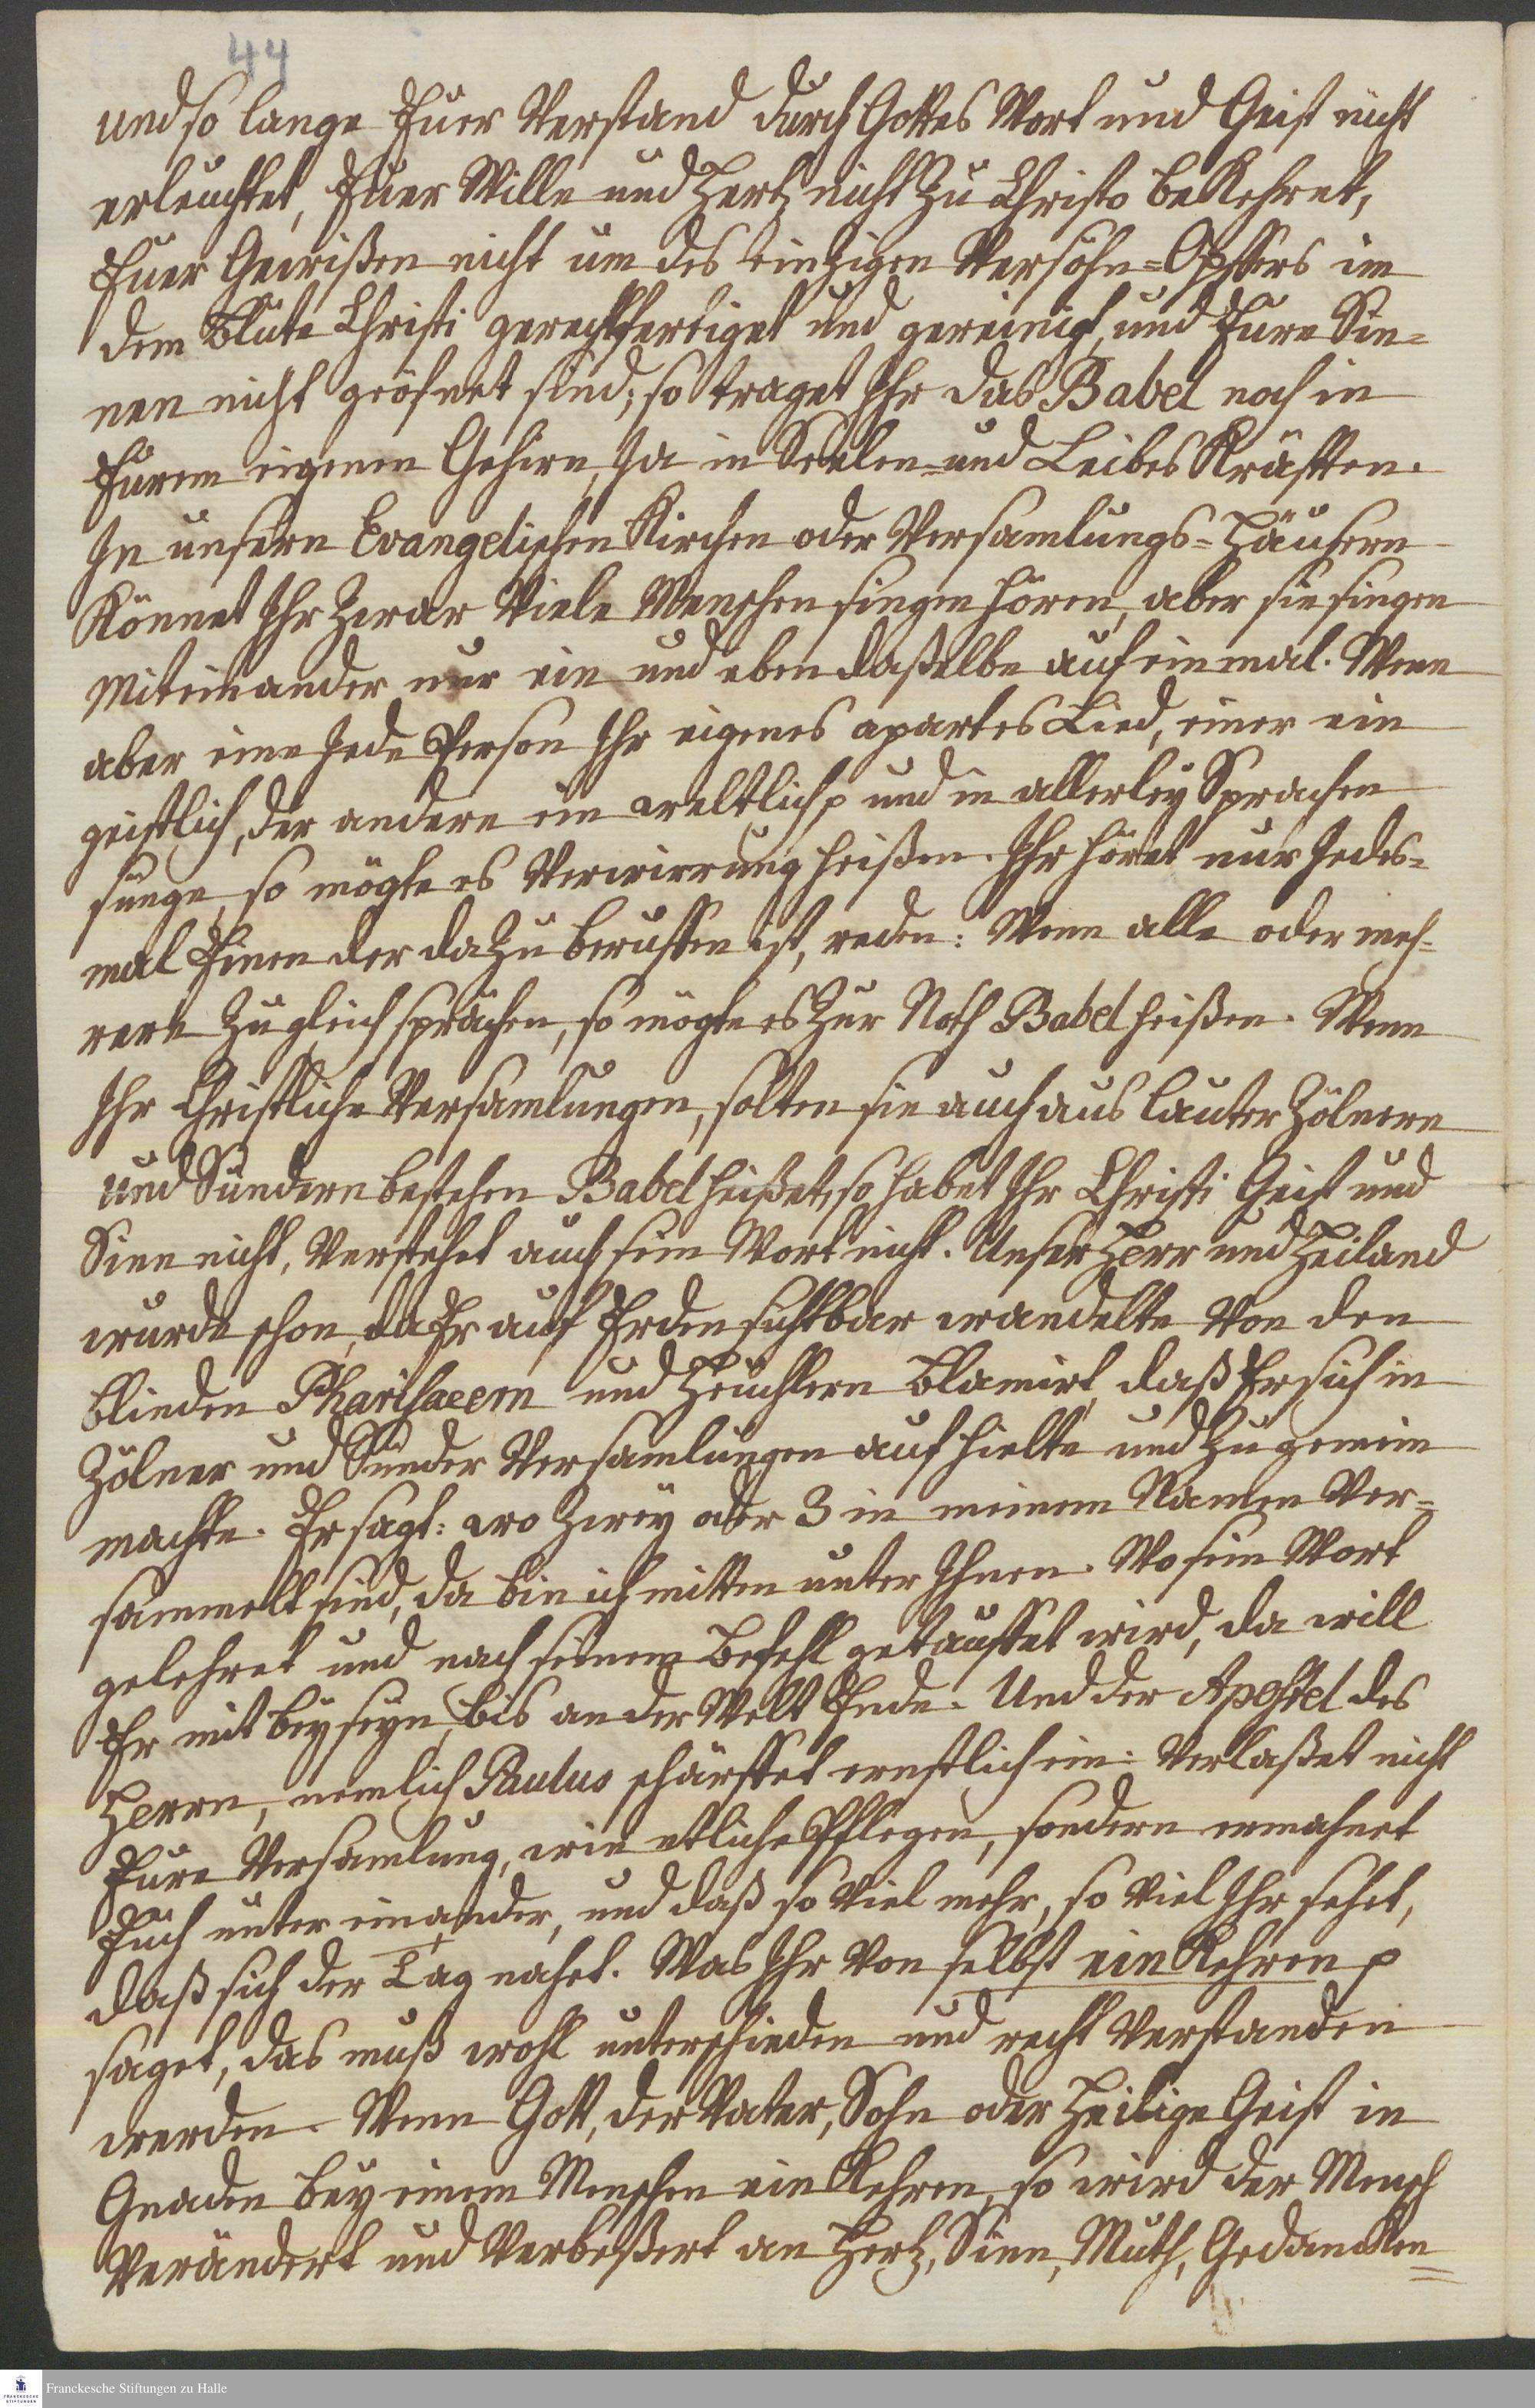 44
und so lange Euer Verstand durch Gottes Wort und Geist nicht
erleuchtet, Euer Wille und Hertz nicht zu Christo bekehret,
Euer Gewißen nicht um des einzigen Versöhn=Opffers im
dem Blute Christi gerechtfertiget und gereinigt, und Eure Sin=
nen nicht geöfnet sind; so traget Ihr das Babel noch in
Eurem eigenen Gehirn, Ja in Seelen= und Leibes Kräfften.
In unsern Evangelischen Kirchen oder Versamlungs=Häusern
Könnet Ihr zwar Viele Menschen singen hören, aber sie singen
Miteinander nur ein und eben daßelbe auf einmal. Wenn
aber eine Jede Person Ihr eigenes apartes Lied, einer ein
geistlich, der andere ein weltlich p und in allerley Sprachen
sünge, so mögte es Verwirrung heißen. Ihr höret nur Jedes=
mal Einen der dazu beruffen ist, reden: Wenn alle oder meh=
rere zugleich sprächen, so mögte es zur Noth Babel heißen. Wenn
Ihr Christliche Versamlungen, solten sie auch aus lauter Zölnern
und Sündern bestehen Babel heißet, so habet Ihr Christi Geist und
Sinn nicht, Verstehet auch sein Wort nicht. Unser Herr und Heiland
wurde schon, da Er auf Erden sichtbar wandelte Von den
blinden Pharisaeern und Heuchlern blamirt, daß Er sich in
Zölner und Sünder Versamlungen aufhielte und zu gemein
machte. Er sagt: wo Zwey oder 3 in meinem Namen Ver=
sammelt sind, da bin ich mitten unter Ihnen. Wo sein Wort
gelehret und nach seinem Befehl getauffet wird, da will
Er mit bey seyn, bis an der Welt Ende. Und der Apostel des
Herrn, nemlich Paulus schärffet ernstlich ein: Verlaßet nicht
Eure Versamlung, wie etliche Pflegen, sondern ermahnet
Euch unter einander, und daß so Viel mehr, so Viel Ihr sehet,
daß sich der Tag nahet. Was Ihr Von selbst einkehren p
saget, das muß wohl unterschieden und recht Verstanden
werden. Wenn Gott, der Vater, Sohn oder Heilige Geist in
Gnaden bey einem Menschen einkehren, so wird der Mensch
Verändert und Verbeßert an Hertz, Sinn, Muth, Gedancken=
Franckesche Stiftungen zu Halle
FRANCKESCHE
STIFTUNGEN